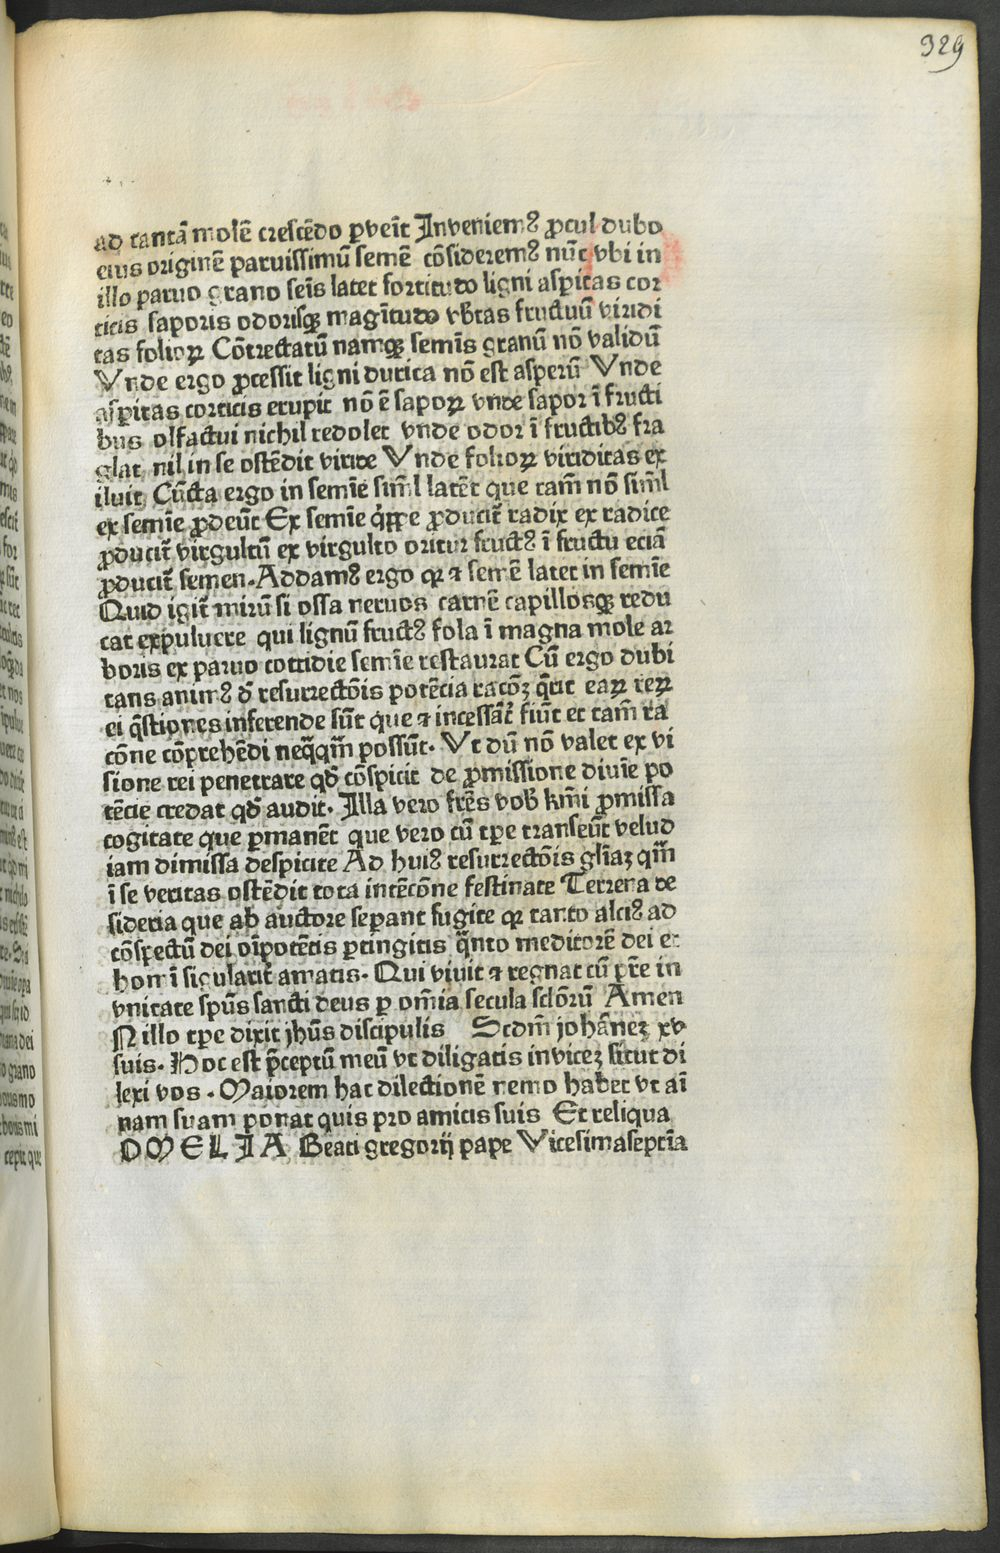 329
ad tantā molē crescēdo ꝑveīt Inveniemꝰ ꝓcul dubo
eius originē paruissimū semē cōsideremꝰ nūc vbi in
illo paruo grano seīs latet fortitudo ligni asꝑitas cor
ticis saporis odorisqꝫ magītudo vb̄tas fructuū viridi
tas folioꝝ Cōtrectatū namqꝫ semīs granū nō validū
Vnde ergo ꝓcessit ligni duricia nō est asperū Vnde
asꝑitas corticis erupit nō ē sapoꝝ vnde sapor ī fructi
bus olfactui nichil redolet vnde odor ī fructibꝰ fra
glat nil in se ostēdit viride Vnde folioꝝ viriditas ex
iluit Cūcta ergo in semīe siml̄ latēt que tam̄ nō siml̄
ex semīe ꝓdeūt Ex semīe q̇ꝑpe ꝓducit̄ radix ex radice
ꝓducit̄ virgultū ex virgulto oritur fructꝰ ī fructu eciā
ꝓducit̄ semen. Addamꝰ ergo qꝛ ⁊ semē latet in semīe
Quid igit̄ mirū si ossa neruos carnē capillosqꝫ redu
cat ex puluere qui lignū fructꝰ fola ī magna mole ar
boris ex paruo cottidie semīe restaurat Cū ergo dubi
tans animꝰ d̄ resurrectōis potēcia racōꝫ q̄rit eaꝝ reꝝ
ei q̄stiones inferende sūt que ⁊ incessāt̄ fiūt et tam̄ ra
cōne cōprehēdi neqq̄m̄ possūt. Vt dū nō valet ex vi
sione rei penetrare qd̄ cōspicit de ꝓmissione diuīe po
tēcie credat qd̄ audit. Illa vero frēs vob̄ km̄i ꝓmissa
cogitate que ꝑmanēt que vero cū tꝑe transeūt velud
iam dimissa despicite Ad huiꝰ resurrectōis gl̄iaꝫ qm̄
ī se veritas ostēdit tota intēcōne festinate Terrena de
sideria que ab auctore seꝑant fugite qꝛ tanto alciꝰ ad
cōspectū dei oīpotētis ꝑtingitis q̄nto meditorē dei et
homī sīgularit̄ amatis. Qui viuit ⁊ regnat cū pr̄e in
vnitate spūs sancti deus ꝑ om̄ia secula sclōrū Amen
N illo tꝑe dixit jhūs discipulis Scdm̄ johānez xv
suis. Hoc est p̄ceptū meū vt diligatis invicez sicut di
lexi vos. Maiorem hac dilectionē nemo habet vt aī
nam suam ponat quis pro amicis suis Et reliqua
OMELIA Beati gregorij pape Vicesimaseptīa